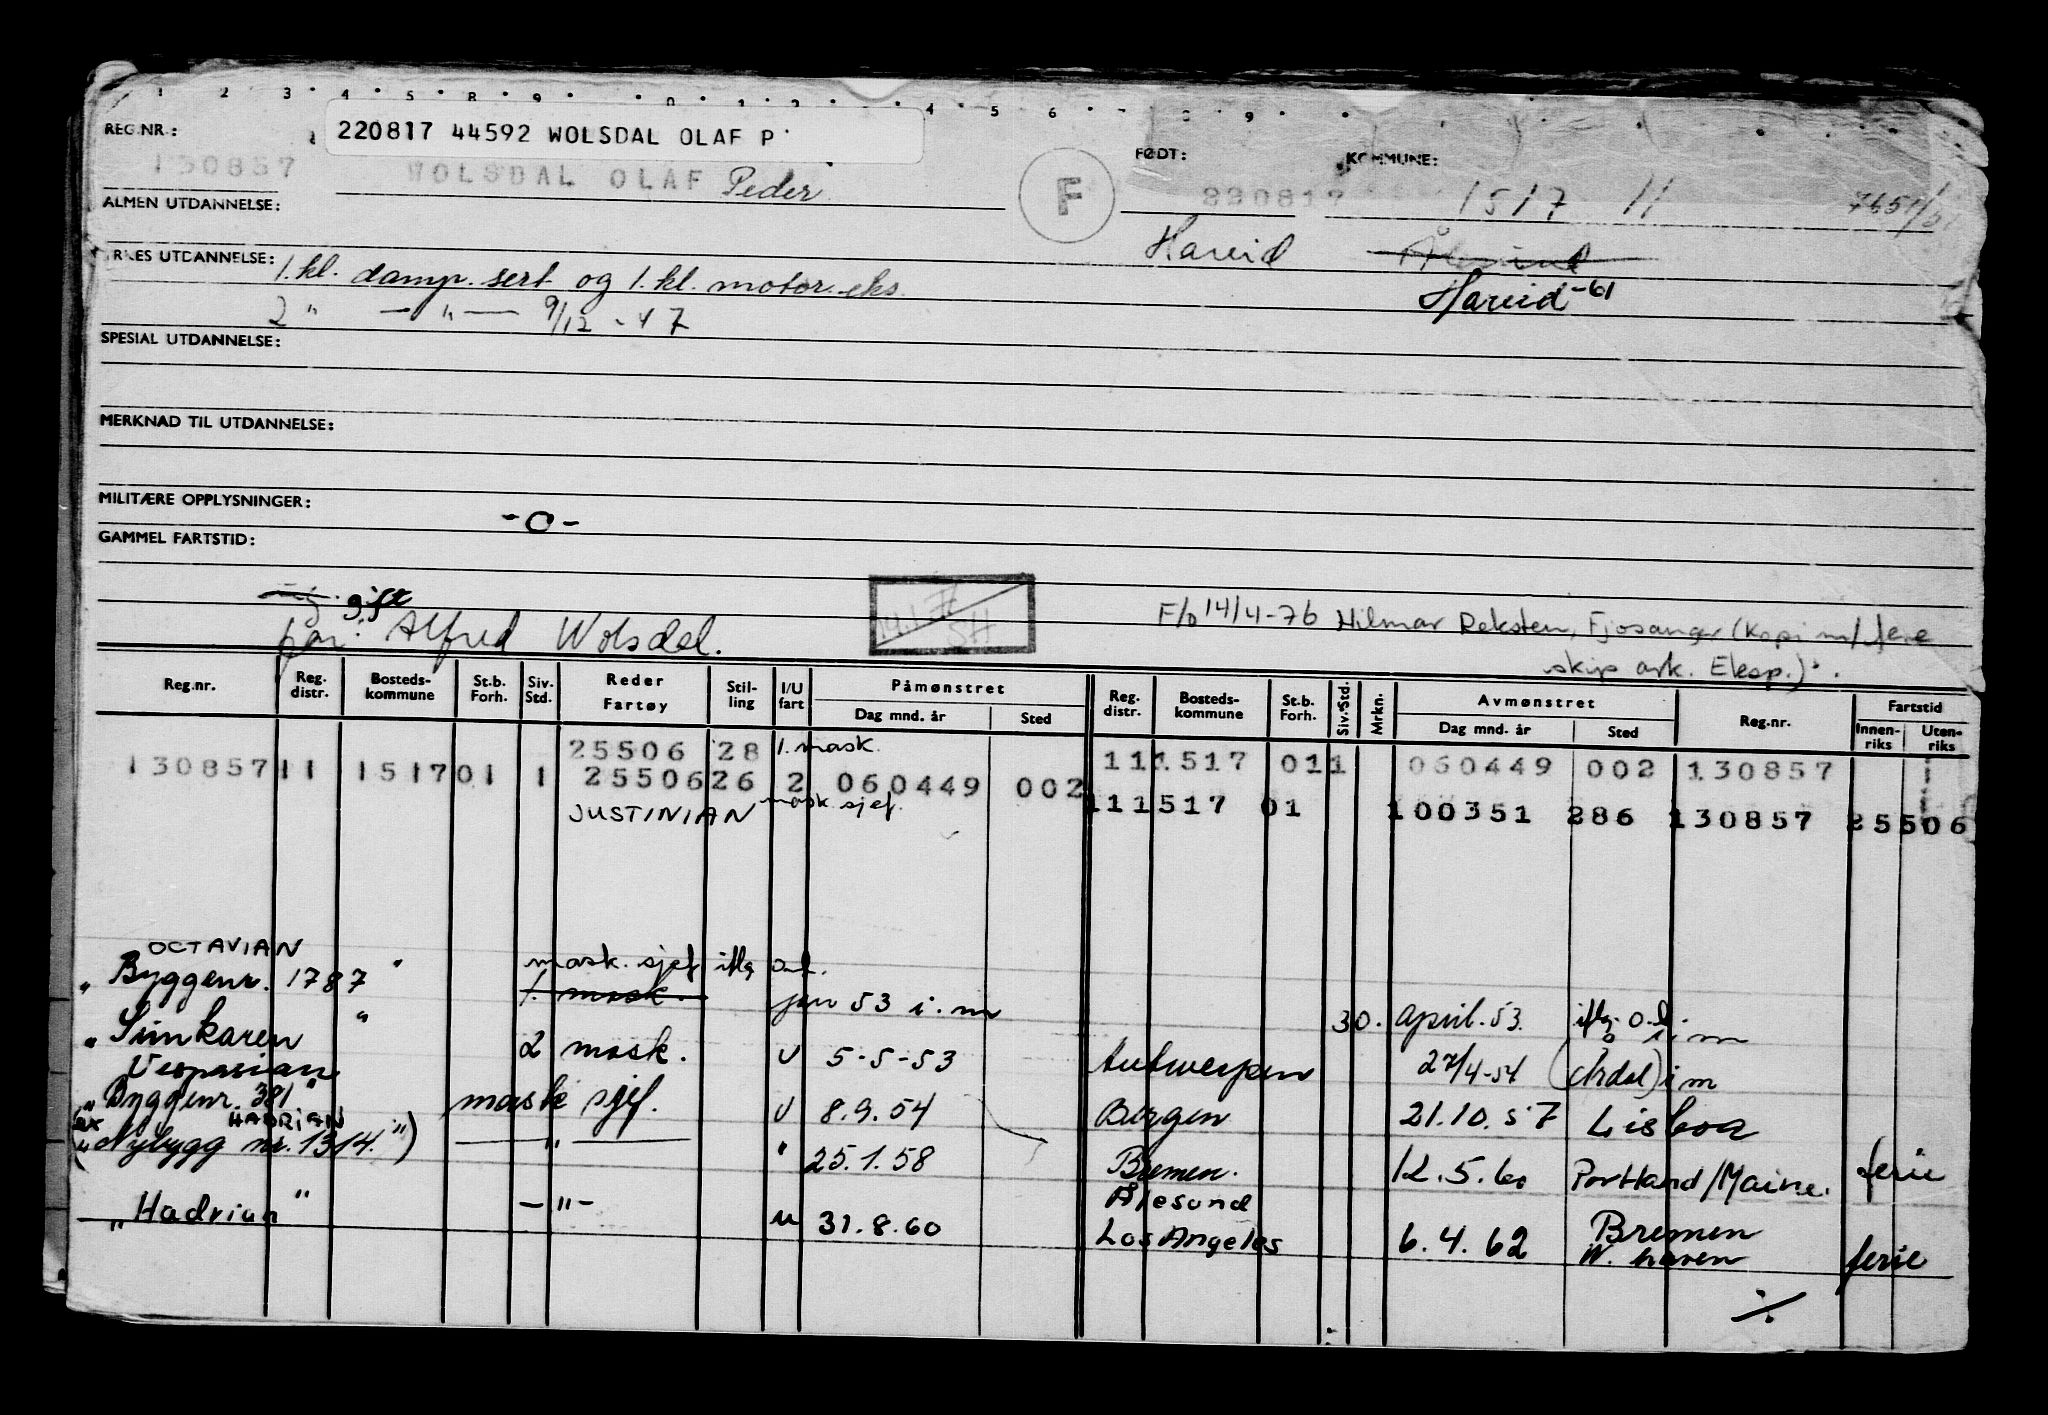 1 2 3 4 5 8 9 0 1 2 4 5 6 7 8 9
REG.NR.: 220817 44592 WOLSDAL OLAF P FØDT: KOMMUNE:
130857 WOLSDAL OLAF Peder F 220817 1517 11
ALMEN UTDANNELSE:
Hareid
UTDANNELSE: 1. kl. damp. sert og 1. kl. motor. eks.
Hareid -61
2 " — " — 9/12 - 47
SPESIAL UTDANNELSE:
MERKNAD TIL UTDANNELSE:
MILITÆRE OPPLYSNINGER:
-0-
GAMMEL FARTSTID:
gift
far: Alfred Wolsdal.
F/o 14/4-76 Hilmar Reksten, Fjøsanger (Kopi m/ flere
skip ark. Eksp.).
Reg.nr. Reg. distr. Bosteds- kommune St.b. Forh. Siv. Std. Reder Fartøy Stil- ling I/U fart Påmønstret Dag mnd. år Sted Reg. distr. Bosteds- kommune St.b. Forh. Siv.Std. Mrkn. Avmønstret Dag mnd. år Sted Reg.nr. Fartstid Innen- riks Uten- riks
25506 28 1. mask.
130857 11 1517 01 1 25506 26 2 060449 002 11 1517 01 1 060449 002 130857
JUSTINIAN mask. sjef. 11 1517 01 100351 286 130857 25506
OCTAVIAN
" Byggenr. 1787 " mask. sjef iflg o.l.
1. mask. jan 53 i.m 30. april. 53. iflg. o.l. i.m
" Simkaren " 2 mask. U 5-5-53 Antwerpen 27/4-54 (Årdal) i m
Vespasian
" Byggenr. 381 " mask sjef. U 8.9.54 Bergen 21.10.57 Lisboa
HADRIAN
(ex " Nybygg nr. 1314. ") — " — " 25.1.58 Bremen. 12.5.60 Portland/Maine. ferie
" Hadrian " - " - u 31.8.60 Ålesund
Los Angeles 6.4.62 Bremen
W. haven ferie
./.